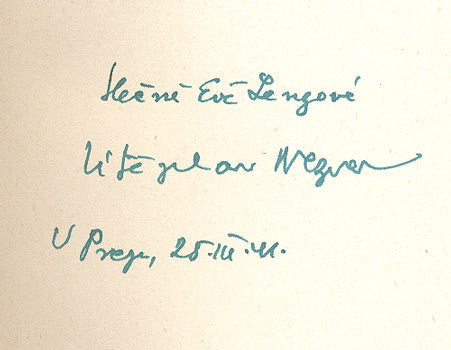 Slečně Evě Lengové
Vítězslav Nezval
V Praze, 25.III.41.